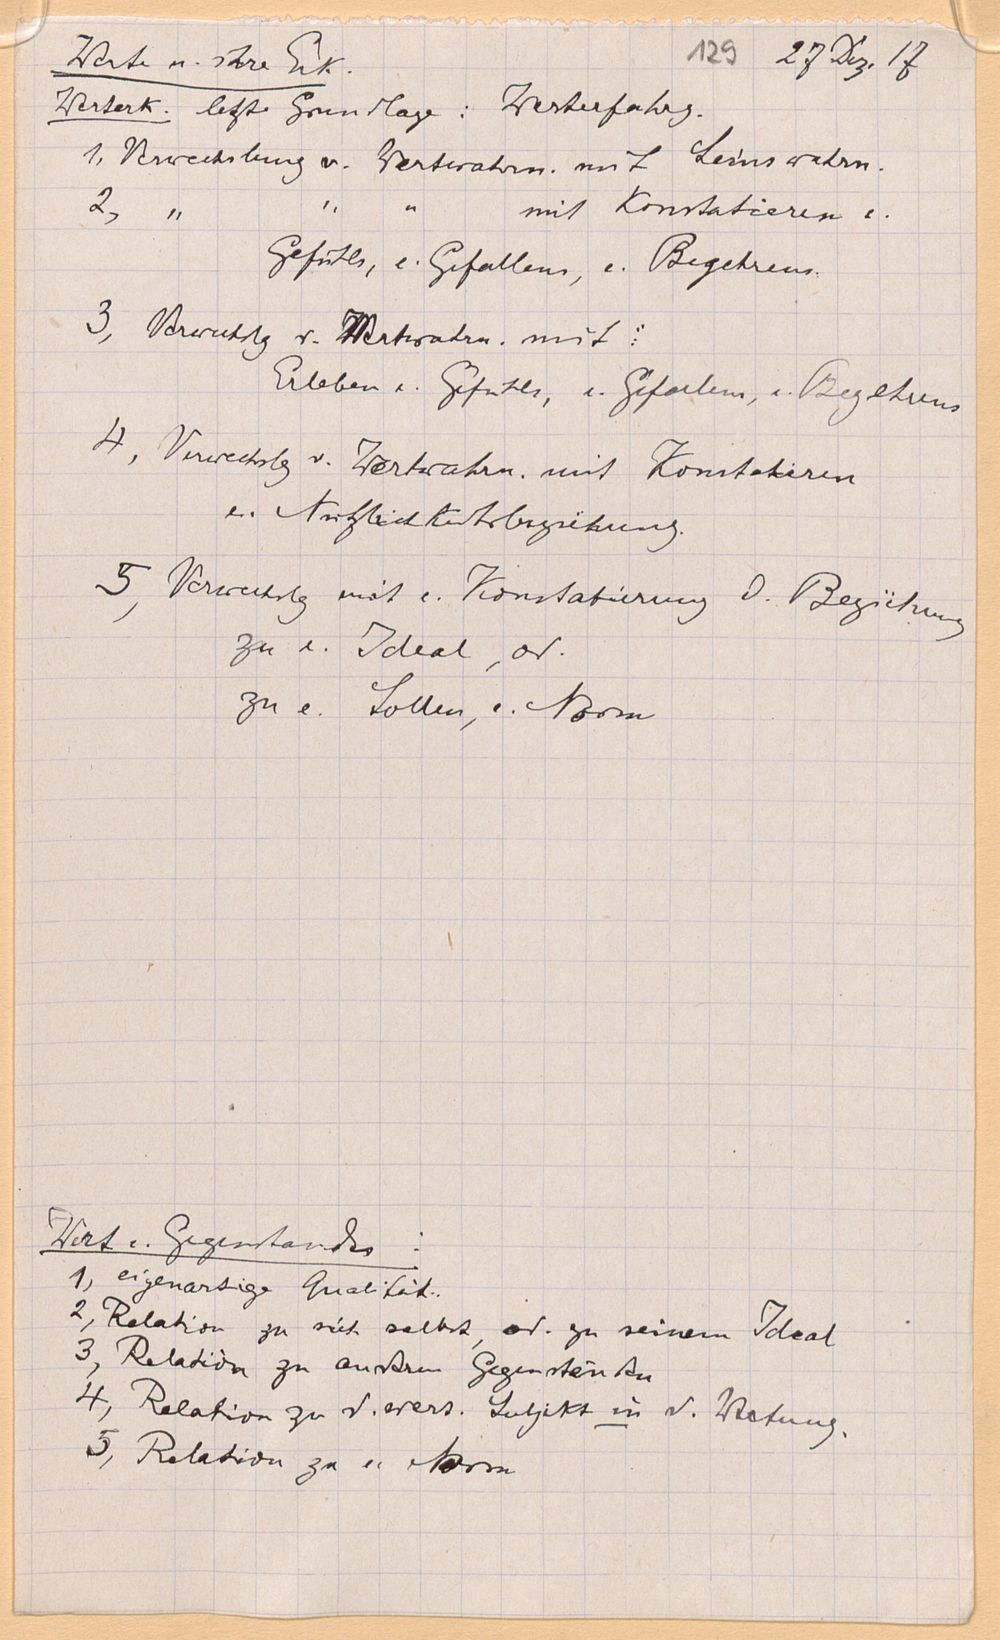 Werte u. ihre Erk. 129 27 Dez. 17
Werterk. letzte Grundlage : Werterfahrg.
1, Verwechslung v. Wertwahrn. mit Seinswahrn.
2, " " " mit Konstatieren e.
Gefühls, e. Gefallens, e. Begehrens.
3, Verwechslg v. Wertwahrn. mit :
Erleben e. Gefühls, e. Gefallens, e. Begehrens
4, Verwechslg v. Wertwahrn. mit Konstatieren
e. Nützlichkeitsbeziehung.
5, Verwechslg mit e. Konstatierung d. Beziehung
zu e. Ideal, od.
zu e. Sollen, e. Norm
Wert e. Gegenstandes :
1, eigenartige Qualität.
2, Relation zu sich selbst, od. zu seinem Ideal
3, Relation zu anderen Gegenständen
4, Relation zu d. Subjekt in d. Wertung.
5, Relation zu e. Norm